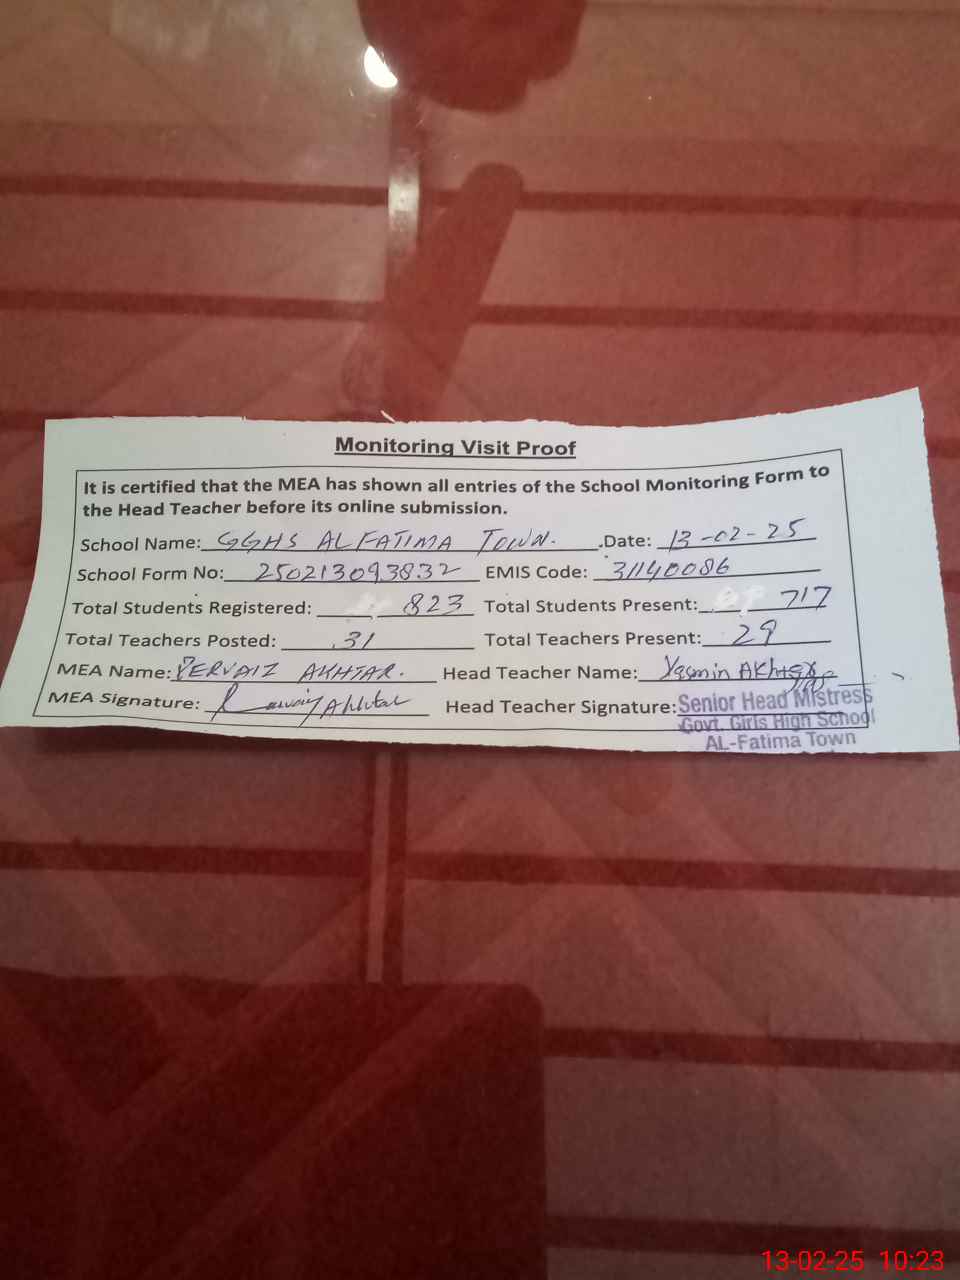 Monitoring Visit Proof
It is certified that the MEA has shown all entries of the School Monitoring Form to
the Head Teacher before its online submission.
School Name: GGHS AL FATIMA TOWN. .Date: 13-02-25
School Form No: 250213093832 EMIS Code: 31140086
Total Students Registered: 823 Total Students Present: 717
Total Teachers Posted: 31 Total Teachers Present: 29
MEA Name: PERVAIZ AKHTAR. Head Teacher Name: Yasmin AKhtar
MEA Signature: Pervaiz Akhtar Head Teacher Signature:
Senior Head Mistress
Govt. Girls High School
AL-Fatima Town
13-02-25 10:23